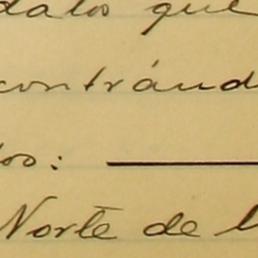 datos que
contránd
os:
Norte de l